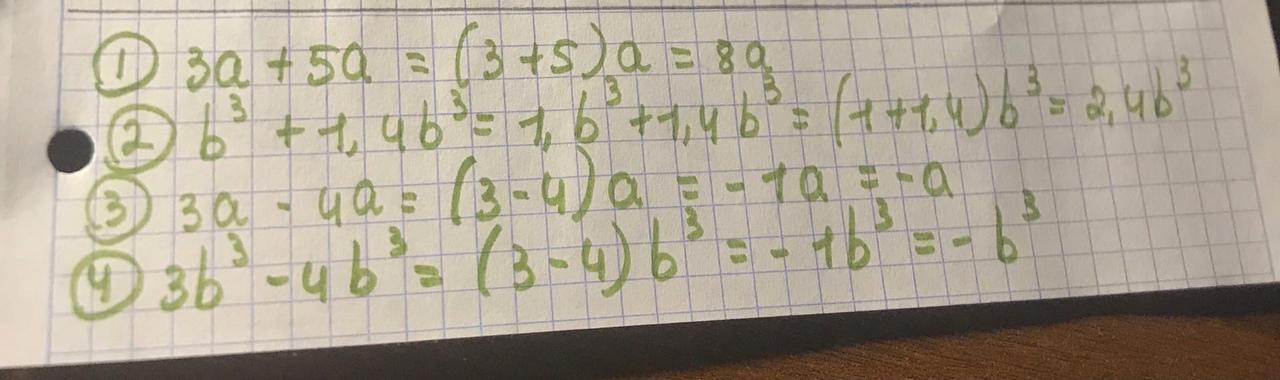 ① 3a + 5a = (3+5)a = 8a
② b³ + 1,4b³ = 1,b³ + 1,4b³ = (1+1,4)b³ = 2,4b³
③ 3a - 4a = (3-4)a = -1a = -a
④ 3b³ - 4b³ = (3-4)b³ = -1b³ = -b³